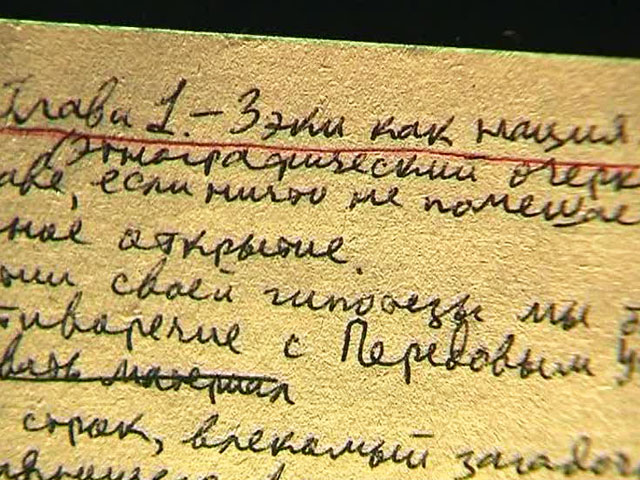 Глава 1. – Зэки как нация
(Этнографический очерк
аве, если ничто не помешае
ное открытие.
нии своей гипотезы мы
тиворечие с Передовым У
вать материал
строк, влекомый загадоч